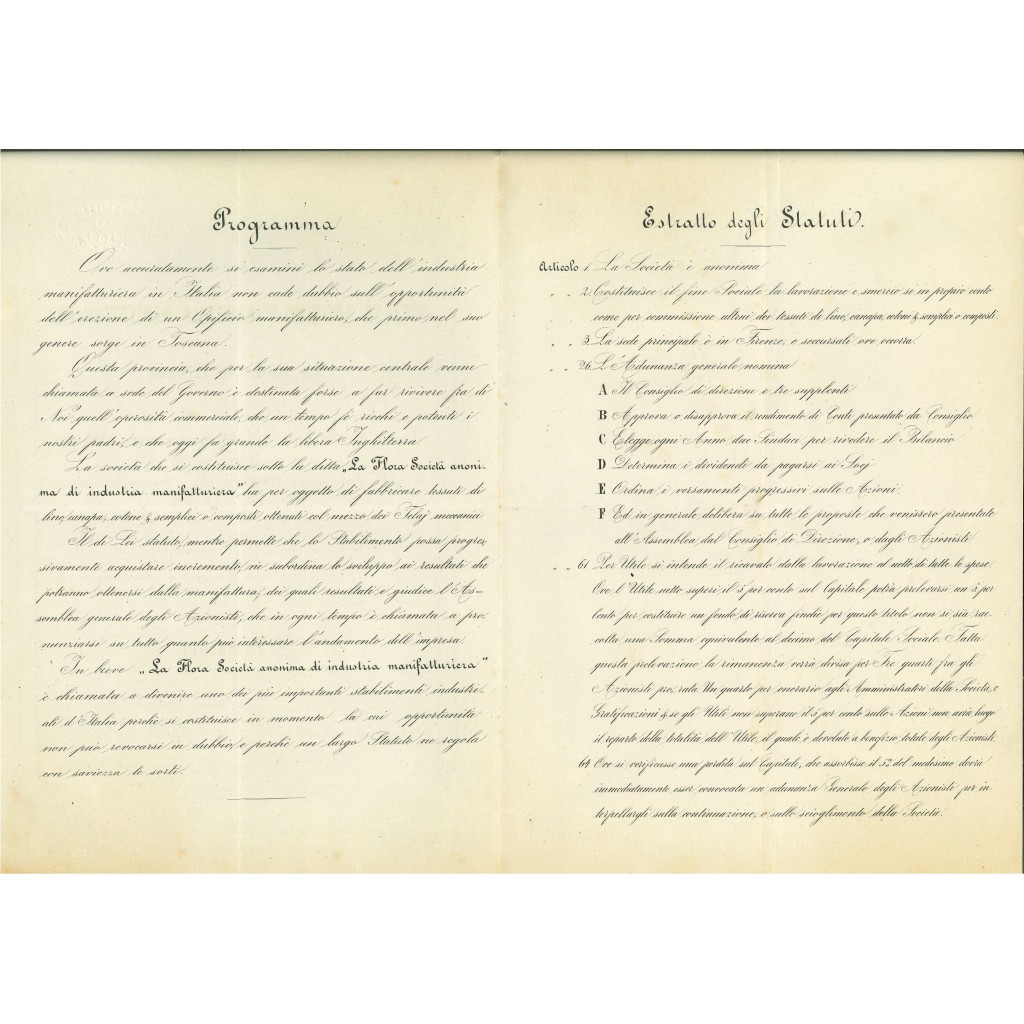 Programma
Ove accuratamente si esamini lo stato dell'industria
manifatturiera in Italia non cade dubbio sull'opportunità
dell'erezione di un Opificio manifatturiero, che primo nel suo
genere sorge in Toscana.
Questa provincia, che per la sua situazione centrale venne
chiamata a sede del Governo è destinata forse a far rivivere fra di
Noi quell'operosità commerciale, che un tempo fè ricchi e potenti i
nostri padri, e che oggi fa grande la libera Inghilterra
La società che si costituisce sotto la ditta „La Flora Società anoni-
ma di industria manifatturiera" ha per oggetto di fabbricare tessuti di
lino, canapa, cotone & semplici o composti ottenuti col mezzo dei Telaj meccanici
Il di Lei statuto, mentre permette che lo Stabilimento possa progres-
sivamente acquistare incremento, ne subordina lo sviluppo ai resultati che
potranno ottenersi dalla manifattura, dei quali resultati è giudice l'As-
semblea generale degli Azionisti, che in ogni tempo è chiamata a pro-
nunziarsi su tutto quanto può interessare l'andamento dell'impresa.
In breve „La Flora Società anonima di industria manifatturiera"
è chiamata a divenire uno dei più importanti stabilimenti industri-
ali d'Italia perchè si costituisce in momento la cui opportunità
non può revocarsi in dubbio, e perchè un largo Statuto ne regola
con saviezza le sorti.
Estratto degli Statuti.
Articolo 1. La Società è anonima
„ „ 2. Costituisce il fine Sociale la lavorazione e smercio sì in proprio conto
come per commissione altrui dei tessuti di lino, canapa, cotoni & semplici o composti.
„ „ 3. La sede principale è in Firenze, e succursali ove occorra.
„ „ 26. L'Adunanza generale nomina
A Il Consiglio di direzione e tre supplenti
B Approva o disapprova il rendimento di Conti presentato da Consiglio
C Elegge ogni Anno due Sindaci per rivedere il Bilancio
D Determina i dividendi da pagarsi ai Socj
E Ordina i versamenti progressivi sulle Azioni.
F Ed in generale delibera su tutte le proposte che venissero presentate
all'Assemblea dal Consiglio di Direzione, o dagli Azionisti
„ „ 61 Per Utile si intende il ricavato dalla lavorazione al netto di tutte le spese.
Ove l'Utile netto superi il 5 per cento sul Capitale potrà prelevarsi un 5 per
Cento per costituire un fondo di riserva finchè per questo titolo non si sia rac-
colta una Somma equivalente al decimo del Capitale Sociale. Fatta
questa prelevazione la rimanenza verrà divisa per Tre quarti fra gli
Azionisti pro rata Un quarto per onorario agli Amministratori della Società, e
Gratificazioni & se gli Utili non superano il 5 per cento sulle Azioni non avrà luogo
il reparto della totalità dell'Utile, il quale è devoluto a benefizio totale degli Azionisti.
64 Ove si verificasse una perdita sul Capitale, che assorbisse il 5° del medesimo dovrà
immediatamente esser convocata un adunanza Generale degli Azionisti per in-
terpellargli sulla continuazione, o sullo scioglimento della Società.